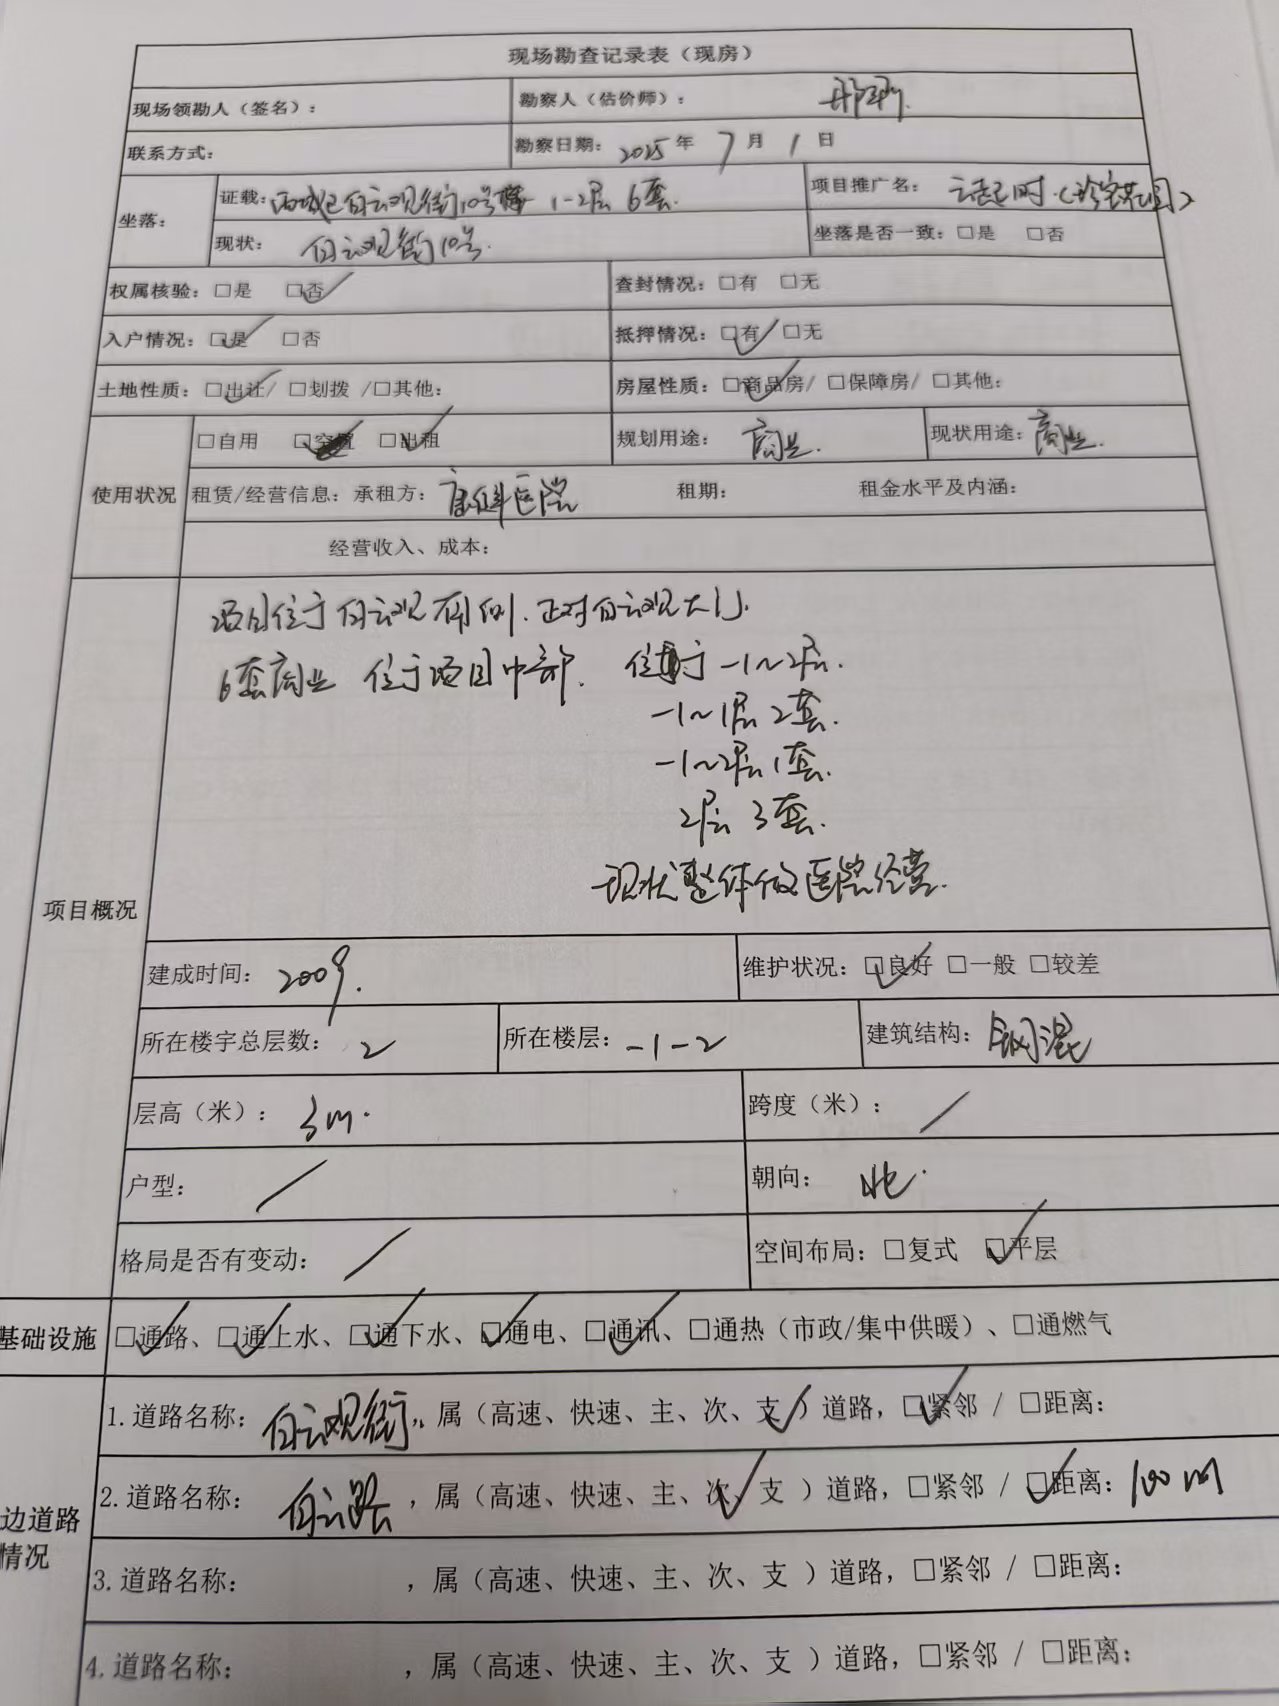 现场勘查记录表（现房）
现场领勘人（签名）： 勘察人（估价师）：
联系方式： 勘察日期：2025年 7月 1日
坐落： 证载：西城区白云观街10号楼 1-2层 6套. 项目推广名：云起时·（珍宝花园）
现状：白云观街10号. 坐落是否一致：□是 □否
权属核验：□是 □否✓ 查封情况：□有 □无
入户情况：□是✓ □否 抵押情况：□有✓ □无
土地性质：□出让✓/ □划拨 /□其他： 房屋性质：□商品房✓/ □保障房/ □其他：
使用状况 □自用 □空置 □出租✓ 规划用途：商业. 现状用途：商业.
租赁/经营信息：承租方：康科医院 租期： 租金水平及内涵：
经营收入、成本：
项目概况
项目位于白云观南侧.正对白云观大门.
6套商业 位于项目中部. 位于 -1~2层.
-1~1层 2套.
-1~2层 1套.
2层 3套.
现状整体做医院经营.
建成时间：2009. 维护状况：□良好✓ □一般 □较差
所在楼宇总层数：2 所在楼层：-1-2 建筑结构：钢混
层高（米）：3m. 跨度（米）：/
户型：/ 朝向：北.
格局是否有变动：/ 空间布局：□复式 □平层✓
基础设施 □通路✓、□通上水✓、□通下水✓、□通电✓、□通讯✓、□通热（市政/集中供暖）、□通燃气
边道路情况
1.道路名称：白云观街，属（高速、快速、主、次、支✓）道路，□紧邻✓ / □距离：
2.道路名称：白云路，属（高速、快速、主、次✓、支 ）道路，□紧邻 / □距离✓：100m
3.道路名称： ，属（高速、快速、主、次、支 ）道路，□紧邻 / □距离：
4.道路名称： ，属（高速、快速、主、次、支 ）道路，□紧邻 / □距离：